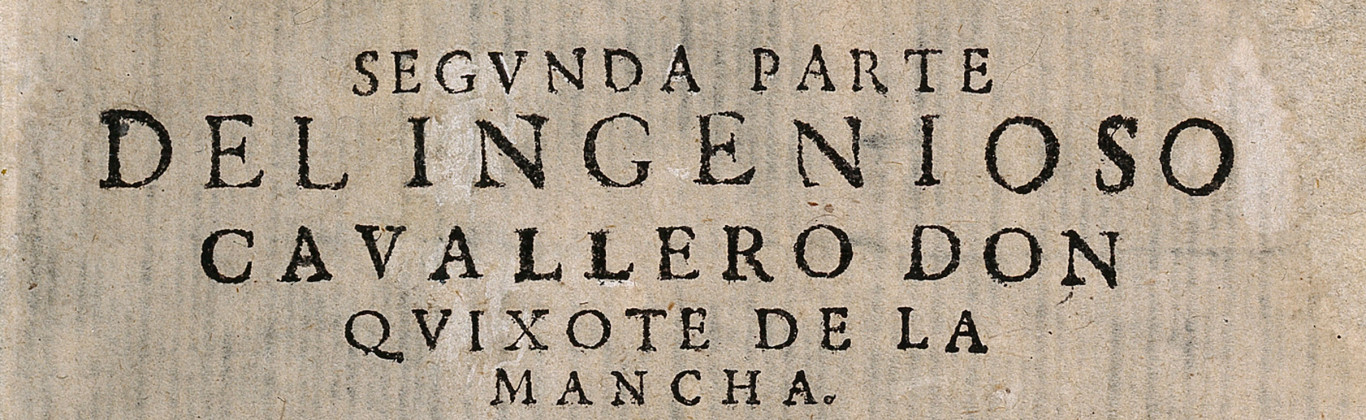 SEGVNDA PARTE
DEL INGENIOSO
CAVALLERO DON
QVIXOTE DE LA
MANCHA.